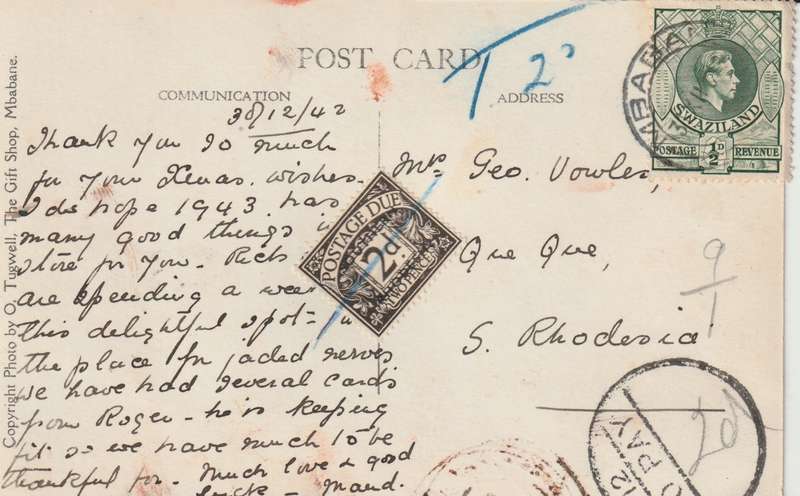 POST CARD
COMMUNICATION
ADDRESS
T 2d
MBABANE
SWAZILAND
POSTAGE ½D REVENUE
30/12/42
Thank you so much
for your Xmas wishes.
I do hope 1943 has
many good things in
store for you -
are spending a
this delightful spot -
the place for jaded nerves
we have had several cards
from Roger - he is keeping
fit so we have much to be
thankful for. Much love & good
luck - Maud.
POSTAGE DUE
2d.
TWO PENCE
Mrs Geo. Vowles,
Que Que,
S. Rhodesia
9/1
TO PAY
2d
Copyright Photo by O. Tugwell, The Gift Shop, Mbabane.